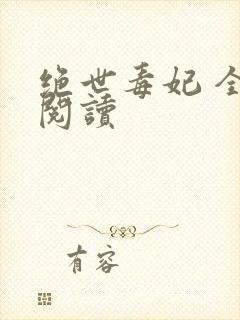 绝世毒妃 全
閱讀
有容